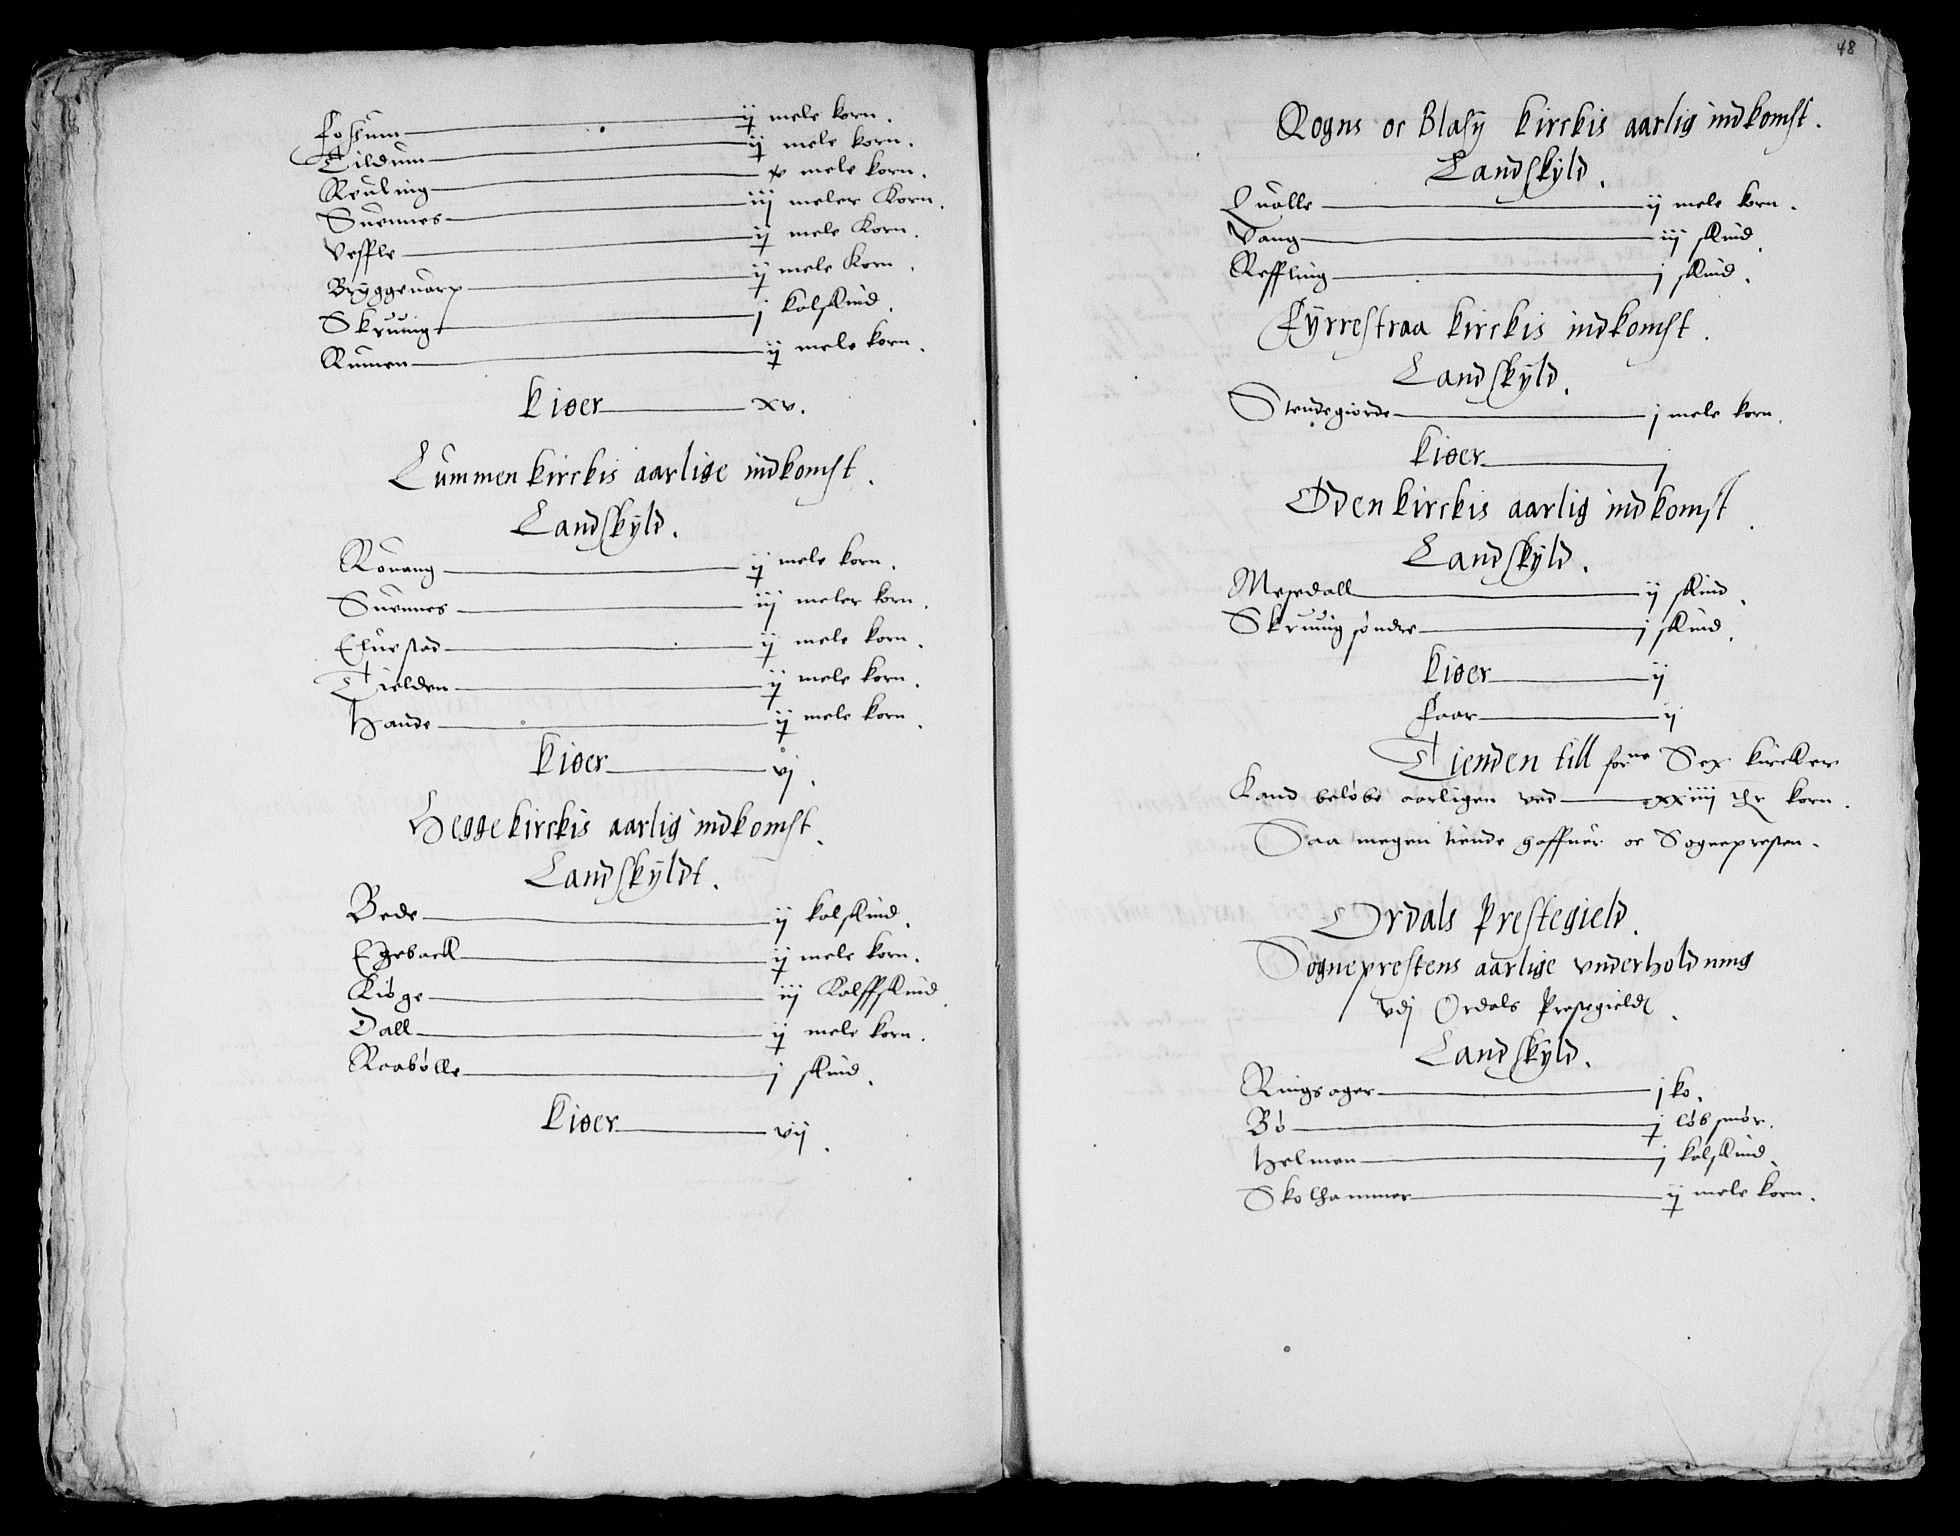 Fossum ij mele korn.
Tildum ij mele korn.
Reuling x mele korn.
Suennes iij meler Korn.
Veffle ij mele Korn.
Bryggeuarp ij mele Korn.
Skruuig j kalskind.
Rumen ij mele korn.
kiøer xv.
Lummen kirckis aarlige indkomst.
Landskyld.
Rouang ij mele korn.
Suennes iij meler korn.
Eluestad ij mele korn.
Tielden ij mele korn.
Hande ij mele korn.
Kiøer vj.
Hegge kirckis aarlig indkomst.
Landskyldt.
Bede ij kalskind.
Egeback ij mele korn.
Kiøge iij Kalffskind
Dall ij mele korn.
Raabølle j skind.
kiøer vij.
48
Rogns oc Blasij kirckis aarlig indkomst.
Landskyld.
Qualle ij mele korn.
Vang iij skind.
Reffling j skind.
Fyrrestraa kirckis indkomst.
Landskyld.
Stendegiorde j mele korn.
kiøer j
Øden kirckis aarlig indkomst.
Landskyld.
Mesedall ij skind.
Skruuig søndre j skind.
kiøer ij
Faar ij
Tienden till forne Sex kircker
Kand beløbe aarligen ved xxiiij thr korn.
Saa megen tiende haffuer oc Sognepresten.
Ordals Prestegield.
Sogneprestens aarlige vnderholdning
vdj Ordals Prestegield.
Landskyld.
Ringsager j ko.
Bø j løb smør.
Helmen j kalskind.
Skolhammer ij mele korn.